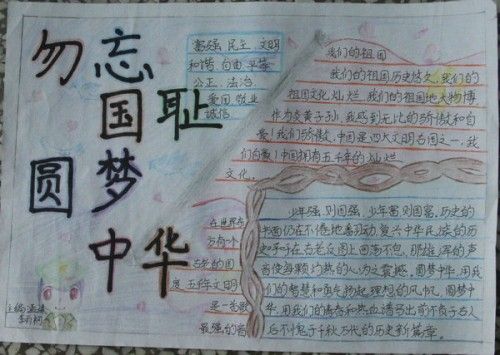 勿忘
国耻
圆梦
中华
富强 民主 文明
和谐 自由 平等
公正 法治
爱国 敬业
诚信
我们的祖国
我们的祖国历史悠久,我们的
祖国文化灿烂,我们的祖国地大物博
作为炎黄子孙,我感到无比的骄傲和自
豪!我们骄傲,中国是四大文明古国之一,我
们自豪!中国拥有五千年的灿烂
文化。
在世界东
方有一个
古老的国
度 五千年文明
是一首歌
最强的音
少年强,则国强,少年富,则国富,历史的
书面仍在不倦地翻动,复兴中华民族的历
史呼呼在古老版图上回荡不息,那雄浑的声
音使每颗灼热的心为之震撼,圆梦中华,用我
们的智慧和勇气扬起理想的风帆,圆梦中
华,用我们的青春和热血谱写出前不负古人
后不愧于千秋万代的历史新篇章。
主编: